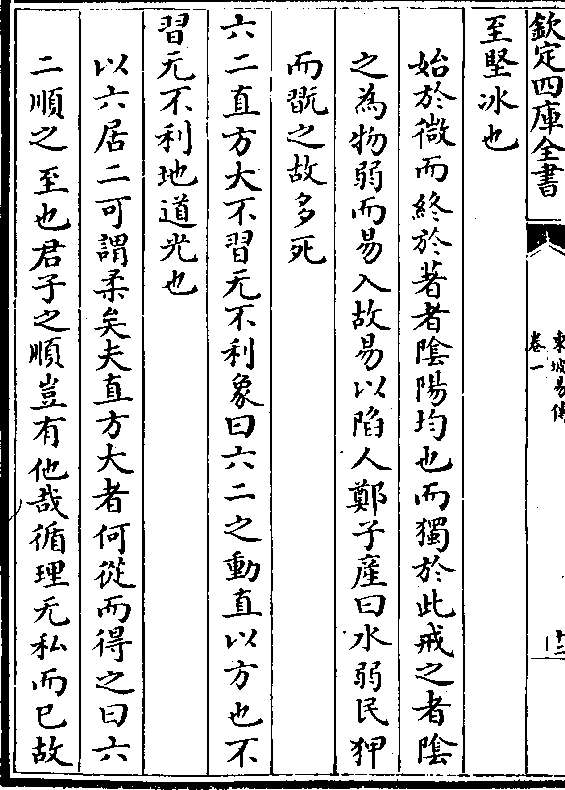 欽定四庫全書
東坡易傳
卷一
十二
至堅冰也
始於微而終於著者陰陽均也而獨於此戒之者陰
之為物弱而易入故易以陷人鄭子產曰水弱民狎
而翫之故多死
六二直方大不習无不利象曰六二之動直以方也不
習无不利地道光也
以六居二可謂柔矣夫直方大者何從而得之曰六
二順之至也君子之順豈有他哉循理无私而已故